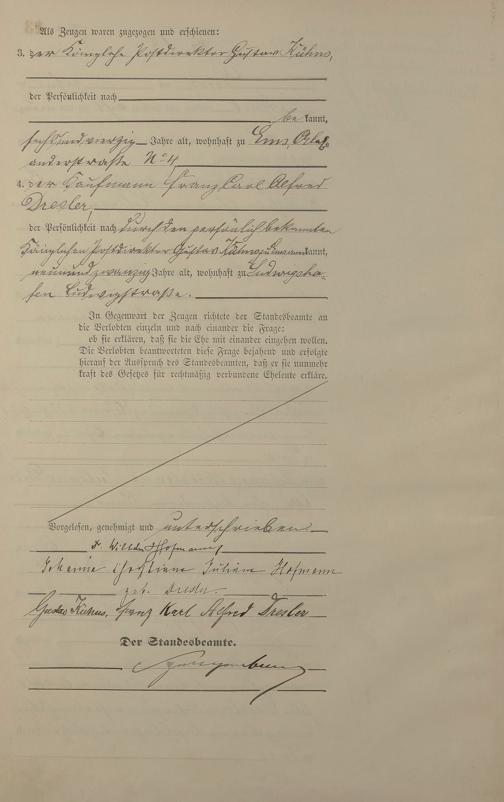 Als Zeugen waren zugezogen und erschienen:
3. der Königliche Postdirektor Gustav Kühns,
der Persönlichkeit nach
be kannt,
sechsundvierzig Jahre alt, wohnhaft zu Ems, Alex-
anderstraße No 4
4. der Kaufmann Franz Carl Alfred
Dresler,
der Persönlichkeit nach durch den persönlich bekannten
Königlichen Postdirektor Gustav Kühns kannt,
neunundzwanzig Jahre alt, wohnhaft zu Ludwigsha-
fen Ludwigstraße.
In Gegenwart der Zeugen richtete der Standesbeamte an
die Verlobten einzeln und nach einander die Frage:
ob sie erklären, daß sie die Ehe mit einander eingehen wollen.
Die Verlobten beantworteten diese Frage bejahend und erfolgte
hierauf der Ausspruch des Standesbeamten, daß er sie nunmehr
kraft des Gesetzes für rechtmäßig verbundene Eheleute erkläre.
Vorgelesen, genehmigt und unterschrieben
Hofmann
Christiane Juliane Hofmann
geb. Dresler
Gustav Kühns, Franz Karl Alfred Dresler
Der Standesbeamte.